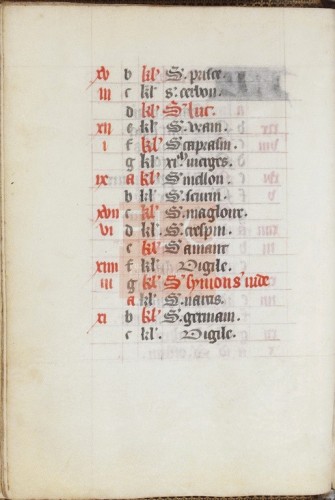 xv b kl' S. prisce.
iii c kl' S. cerbon.
d kl' S' luc.
xii e kl' S. vram.
i f kl' S. caprasin.
g kl' xi^m virges.
ix a kl' S' mellon.
b kl' S. seurin.
xvii c kl' S. magloire.
vi d kl'. S. crespin.
e kl' S' amant
xiiii f kl' Vigile.
iii g kl' S' symon s' iude
a kl' S. narcis.
xi b kl' S'. germain.
c kl'. Vigile.